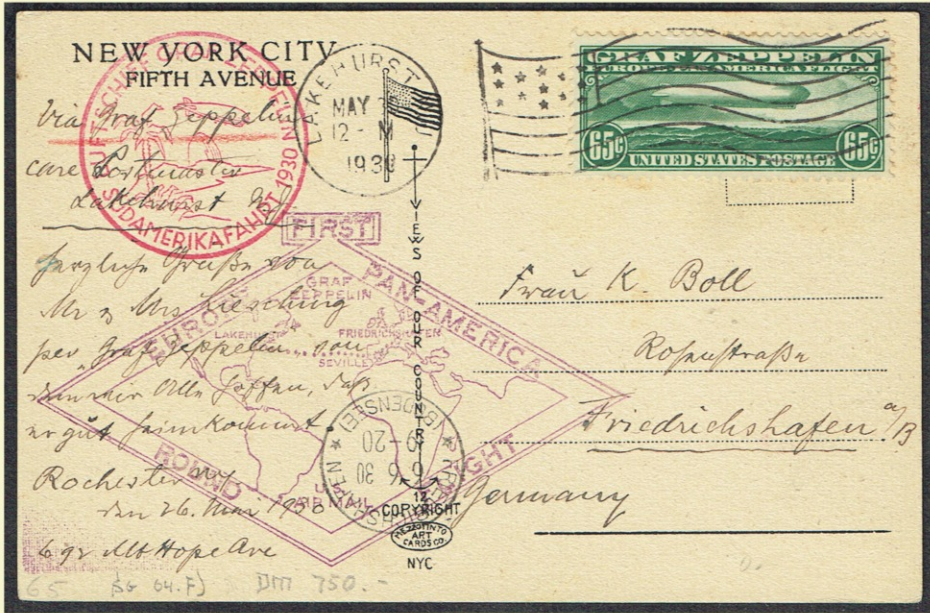 NEW YORK CITY
FIFTH AVENUE
LUFTSCHIFF GRAF ZEPPELIN
SÜDAMERIKAFAHRT 1930
LAKEHURST
MAY
12 - M
1930
GRAF ZEPPELIN
EUROPE PAN-AMERICA FLIGHT
65c UNITED STATES POSTAGE 65c
Via Graf Zeppelin
care Postmaster
Lakehurst NJ
herzliche Grüße von
Mr & Mrs Liesching
per "Graf Zeppelin" von
dem wir Alle hoffen, daß
er gut heimkommt.
Rochester NY
den 26. Mai 1930
692 Mt Hope Ave
FIRST
EUROPE PAN-AMERICA
ROUND FLIGHT
GRAF
ZEPPELIN
LAKEHURST
FRIEDRICHSHAFEN
SEVILLE
U.S.
AIR MAIL
FRIEDRICHSHAFEN
(BODENSEE)
6 6 30
VIEWS OF OUR COUNTRY
12
COPYRIGHT
MEZZOTINTO
ART
CARDS CO.
NYC
Frau K. Boll
Rosenstraße
Friedrichshafen a/B
Germany
65 DM 750.-